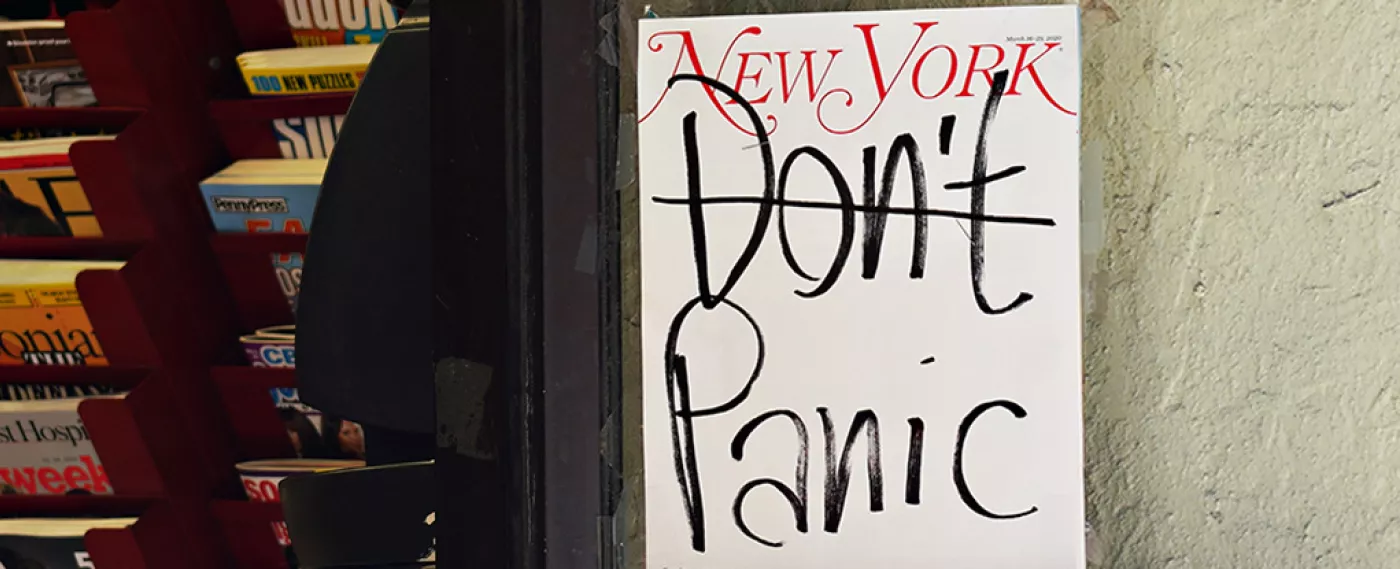 100 NEW PUZZLES
PennyPress
onia
st Hospi
week
CB
SO
NEW YORK
March 16-29, 2020
Don't
Panic